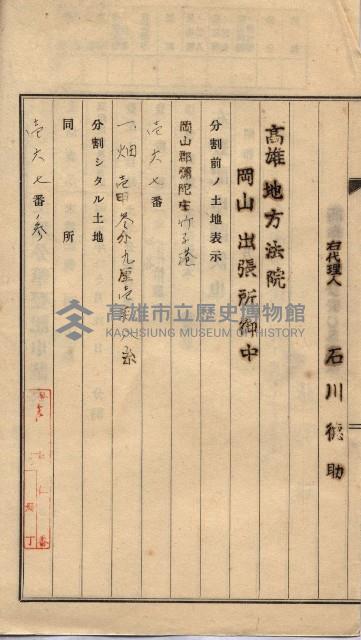 右代理人
石川德助
高雄地方法院
岡山出張所御中
分割前ノ土地表示
岡山郡彌陀庄竹子港
壱六七番
一、畑 壱甲参分九厘壱毛
分割シタル土地
同所
壱六七番ノ参
高雄市立歷史博物館
KAOHSIUNG MUSEUM OF HISTORY
番
丁